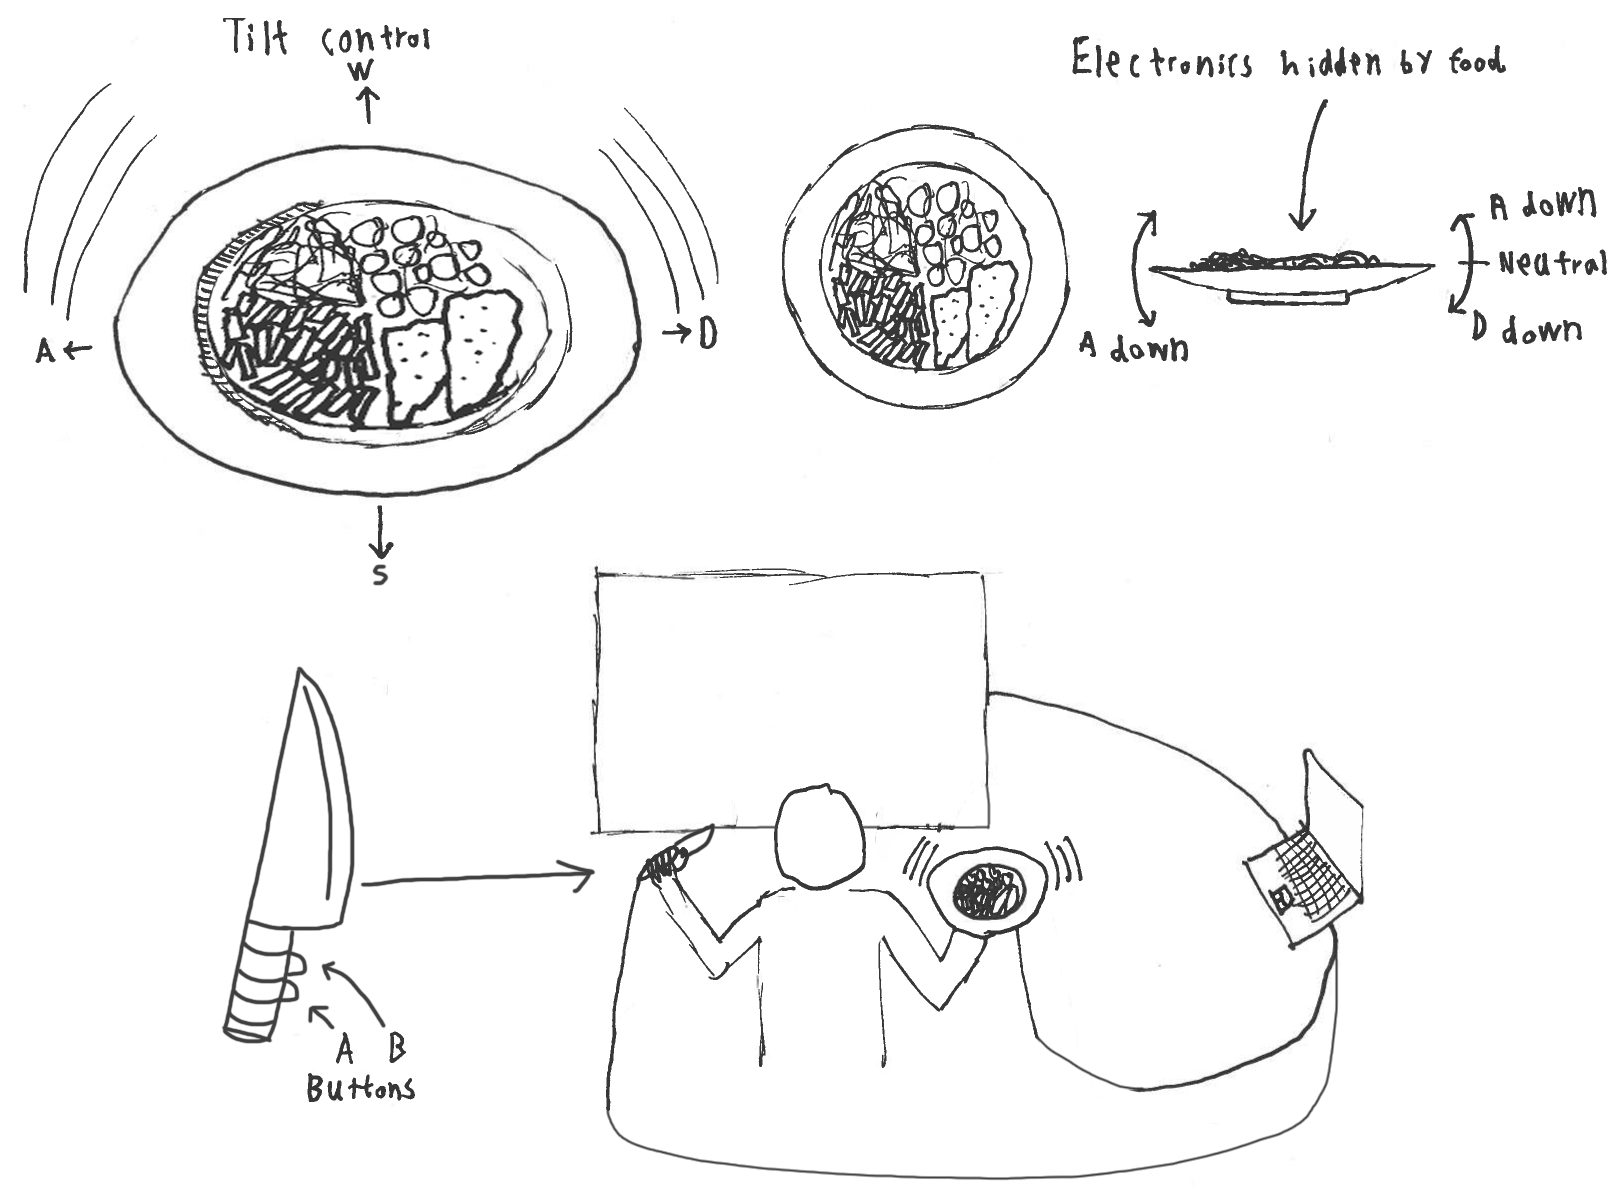 Tilt control
W
A
D
S
Electronics hidden by food
A down
A down
Neutral
D down
A B
Buttons